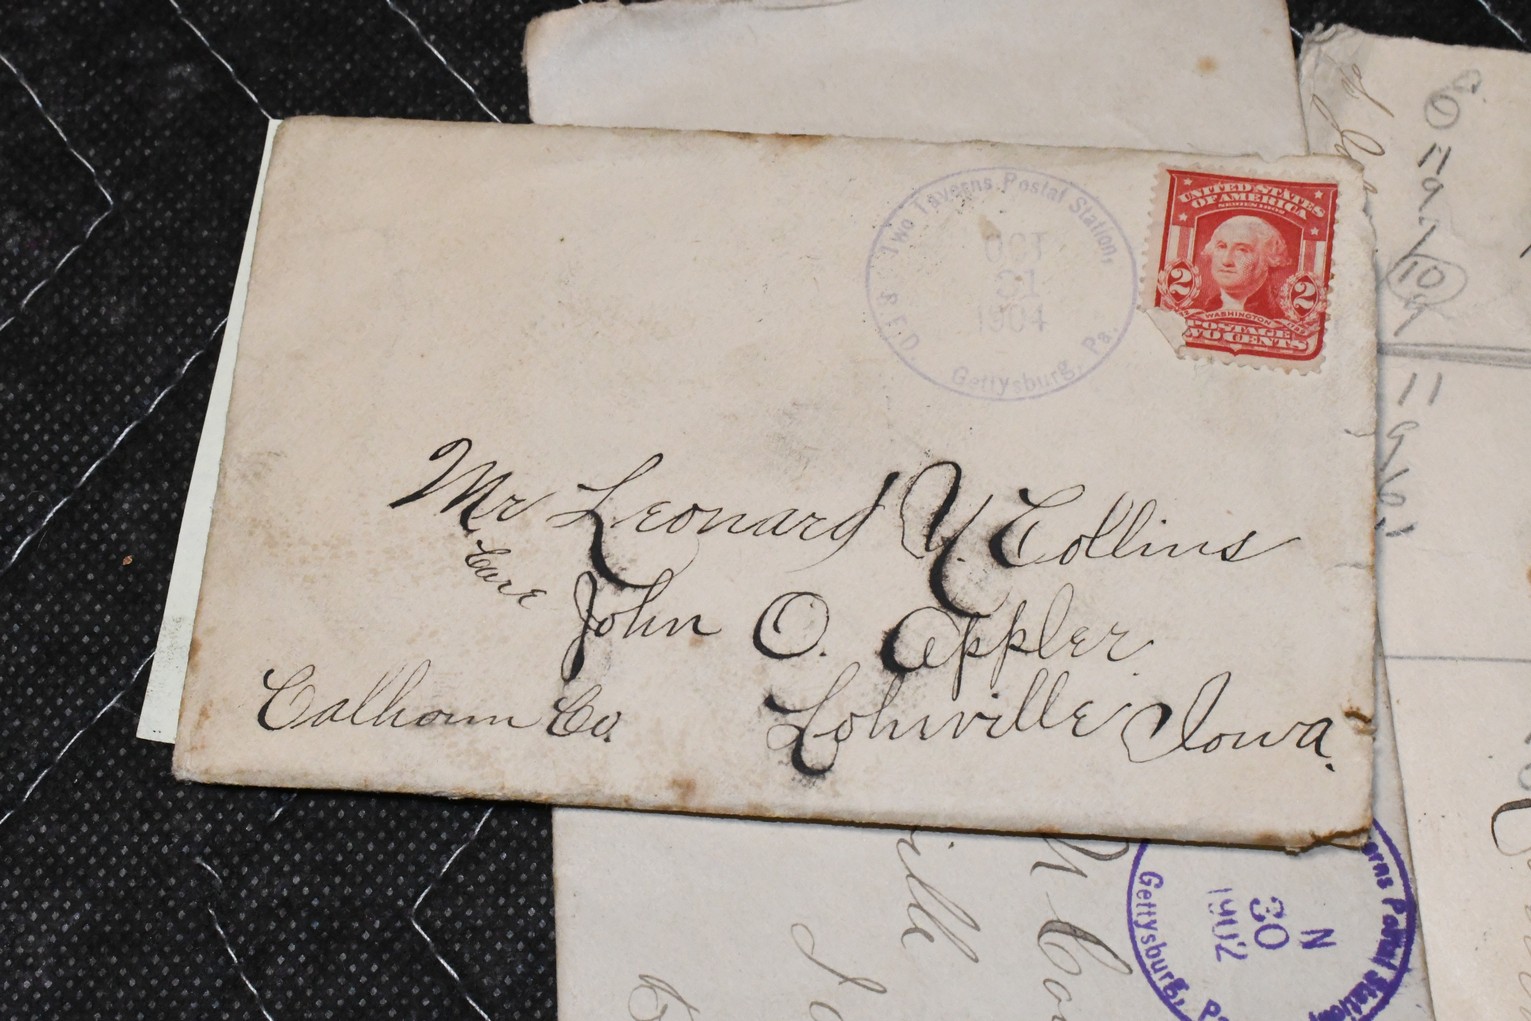 Two Taverns Postal Station,
OCT
31
1904
R.F.D.
Gettysburg, Pa.
UNITED STATES
OF AMERICA
SERIES 1902
2 2
WASHINGTON
POSTAGE
TWO CENTS
Mr Leonard Y. Collins
Care
John O. Eppler
Calhoun Co. Lohrville Iowa.
11
9
10
9
11
9
ville
N
30
1902
Gettysburg, Pa
erns Postal Station,